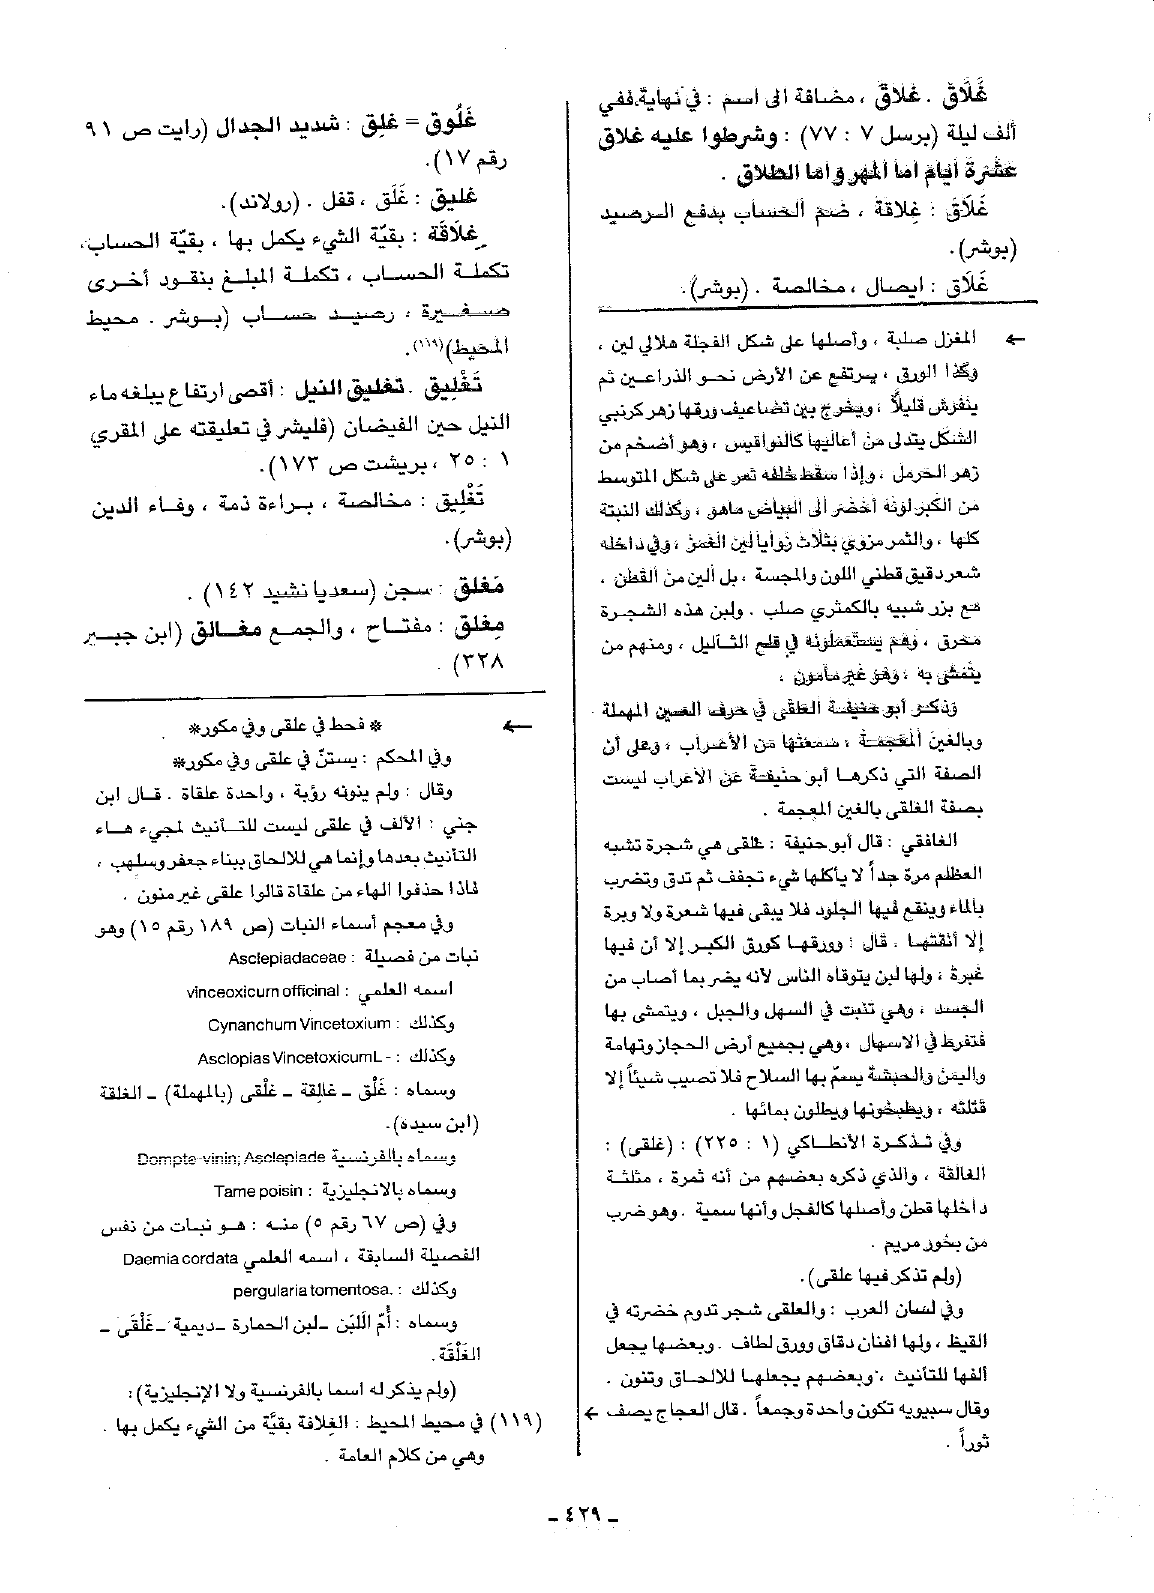 غَلَّاقْ . غلاقْ ، مضافة الى اسم : في نهاية. ففي
ألف ليلة (برسل ٧ : ٧٧) : وشرطوا عليه غلاق
عشرة أيام اما المهر واما الطلاق .
غَلَاق : غِلاقة ، ضم الحساب بدفع الرصيد
(بوشر).
غَلَاق : ايصال ، مخالصة . (بوشر).
← المغزل صلبة ، وأصلها على شكل الفجلة هلالي لين ،
وكذا الورق ، يرتفع عن الأرض نحو الذراعين ثم
ينفرش قليلاً ، ويخرج بين تضاعيف ورقها زهر كرنبي
الشكل يتدلى من أعاليها كالنواقيس ، وهو أضخم من
زهر الحرمل ، وإذا سقط خلفه ثمر على شكل المتوسط
من الكبر لونه أخضر الى البياض ماهو ، وكذلك النبتة
كلها ، والثمر مزوي بثلاث زوايا لين الغمز ، وفي داخله
شعر دقيق قطني اللون والمجسة ، بل ألين من القطن ،
مع بزر شبيه بالكمثري صلب . ولبن هذه الشجرة
محرق ، وهم يستعملونه في قلع الثآليل ، ومنهم من
يتمشى به ، وهو غير مأمون .
وذكر أبو حنيفة العلقى في حرف العين المهملة
وبالغين المعجمة ، سمعتها من الأعراب ، وعلى أن
الصفة التي ذكرها أبو حنيفة عن الأعراب ليست
بصفة الغلقى بالغين المعجمة .
الغافقي : قال أبو حنيفة : غلقى هي شجرة تشبه
العظلم مرة جداً لا يأكلها شيء تجفف ثم تدق وتضرب
بالماء وينقع فيها الجلود فلا يبقى فيها شعرة ولا وبرة
إلا أنقتها . قال : وورقها كورق الكبر إلا أن فيها
غبرة ، ولها لبن يتوقاه الناس لأنه يضر بما أصاب من
الجسد ، وهي تنبت في السهل والجبل ، ويتمشى بها
فتفرط في الاسهال ، وهي بجميع أرض الحجاز وتهامة
واليمن والحبشة يسمّ بها السلاح فلا تصيب شيئاً إلا
قتلته ، ويطبخونها ويطلون بمائها .
وفي تذكرة الأنطاكي (١ : ٢٢٥) : (غلقى) :
الغالقة ، والذي ذكره بعضهم من أنه ثمرة ، مثلثة
داخلها قطن وأصلها كالفجل وأنها سمية . وهو ضرب
من بخور مريم .
(ولم تذكر فيها علقى).
وفي لسان العرب : والعلقى شجر تدوم خضرته في
القيظ ، ولها افنان دقاق وورق لطاف . وبعضها يجعل
ألفها للتأنيث ، وبعضهم يجعلها للالحاق وتنون .
وقال سيبويه تكون واحدة وجمعاً . قال العجاج يصف ←
ثوراً .
غَلُوق = غلِق : شديد الجدال (رايت ص ٩١
رقم ١٧).
غليق : غَلَق ، قفل . (رولاند).
غلَاقَة : بقيّة الشيء يكمل بها ، بقيّة الحساب،
تكملة الحساب ، تكملة المبلغ بنقود أخرى
صغيرة ، رصيد حساب (بوشر . محيط
المحيط)(١١٩).
تَغْلِيق . تغليق النيل : أقصى ارتفاع يبلغه ماء
النيل حين الفيضان (فليشر في تعليقته على المقري
١ : ٢٥ ، بريشت ص ١٧٣).
تَغْلِيق : مخالصة ، براءة ذمة ، وفاء الدين
(بوشر).
مَغلق : سجن (سعديا نشيد ١٤٢) .
مِغلق : مفتاح ، والجمع مغالق (ابن جبير
٣٢٨) .
← * فحط في علقى وفي مكور*
وفي المحكم : يستنّ في علقى وفي مكور*
وقال : ولم ينونه رؤبة ، واحدة علقاة . قال ابن
جني : الألف في علقى ليست للتأنيث لمجيء هاء
التأنيث بعدها وإنما هي للالحاق ببناء جعفر وسلهب ،
فاذا حذفوا الهاء من علقاة قالوا علقى غير منون .
وفي معجم أسماء النبات (ص ١٨٩ رقم ١٥) وهو
نبات من فصيلة : Asclepiadaceae
اسمه العلمي : vinceoxicum officinal
وكذلك : Cynanchum Vincetoxium
وكذلك : - Asclopias VincetoxicumL
وسماه : غَلْق ــ غالِقة ــ غلْقى (بالمهملة) ــ الغلقة
(ابن سيدة).
وسماه بالفرنسية Dompte-vinin; Asclepiade
وسماه بالانجليزية : Tame poisin
وفي (ص ٦٧ رقم ٥) منه : هو نبات من نفس
الفصيلة السابقة ، اسمه العلمي Daemia cordata
وكذلك : .pergularia tomentosa
وسماه : أُمّ اللَبَن ــ لبن الحمارة ــ ديمية ــ غَلْقَى ــ
الغَلْقَة .
(ولم يذكر له أسما بالفرنسية ولا الإنجليزية) :
(١١٩) في محيط المحيط : الغِلاقة بقيَّة من الشيء يكمل بها .
وهي من كلام العامة .
ــ ٤٢٩ ــ